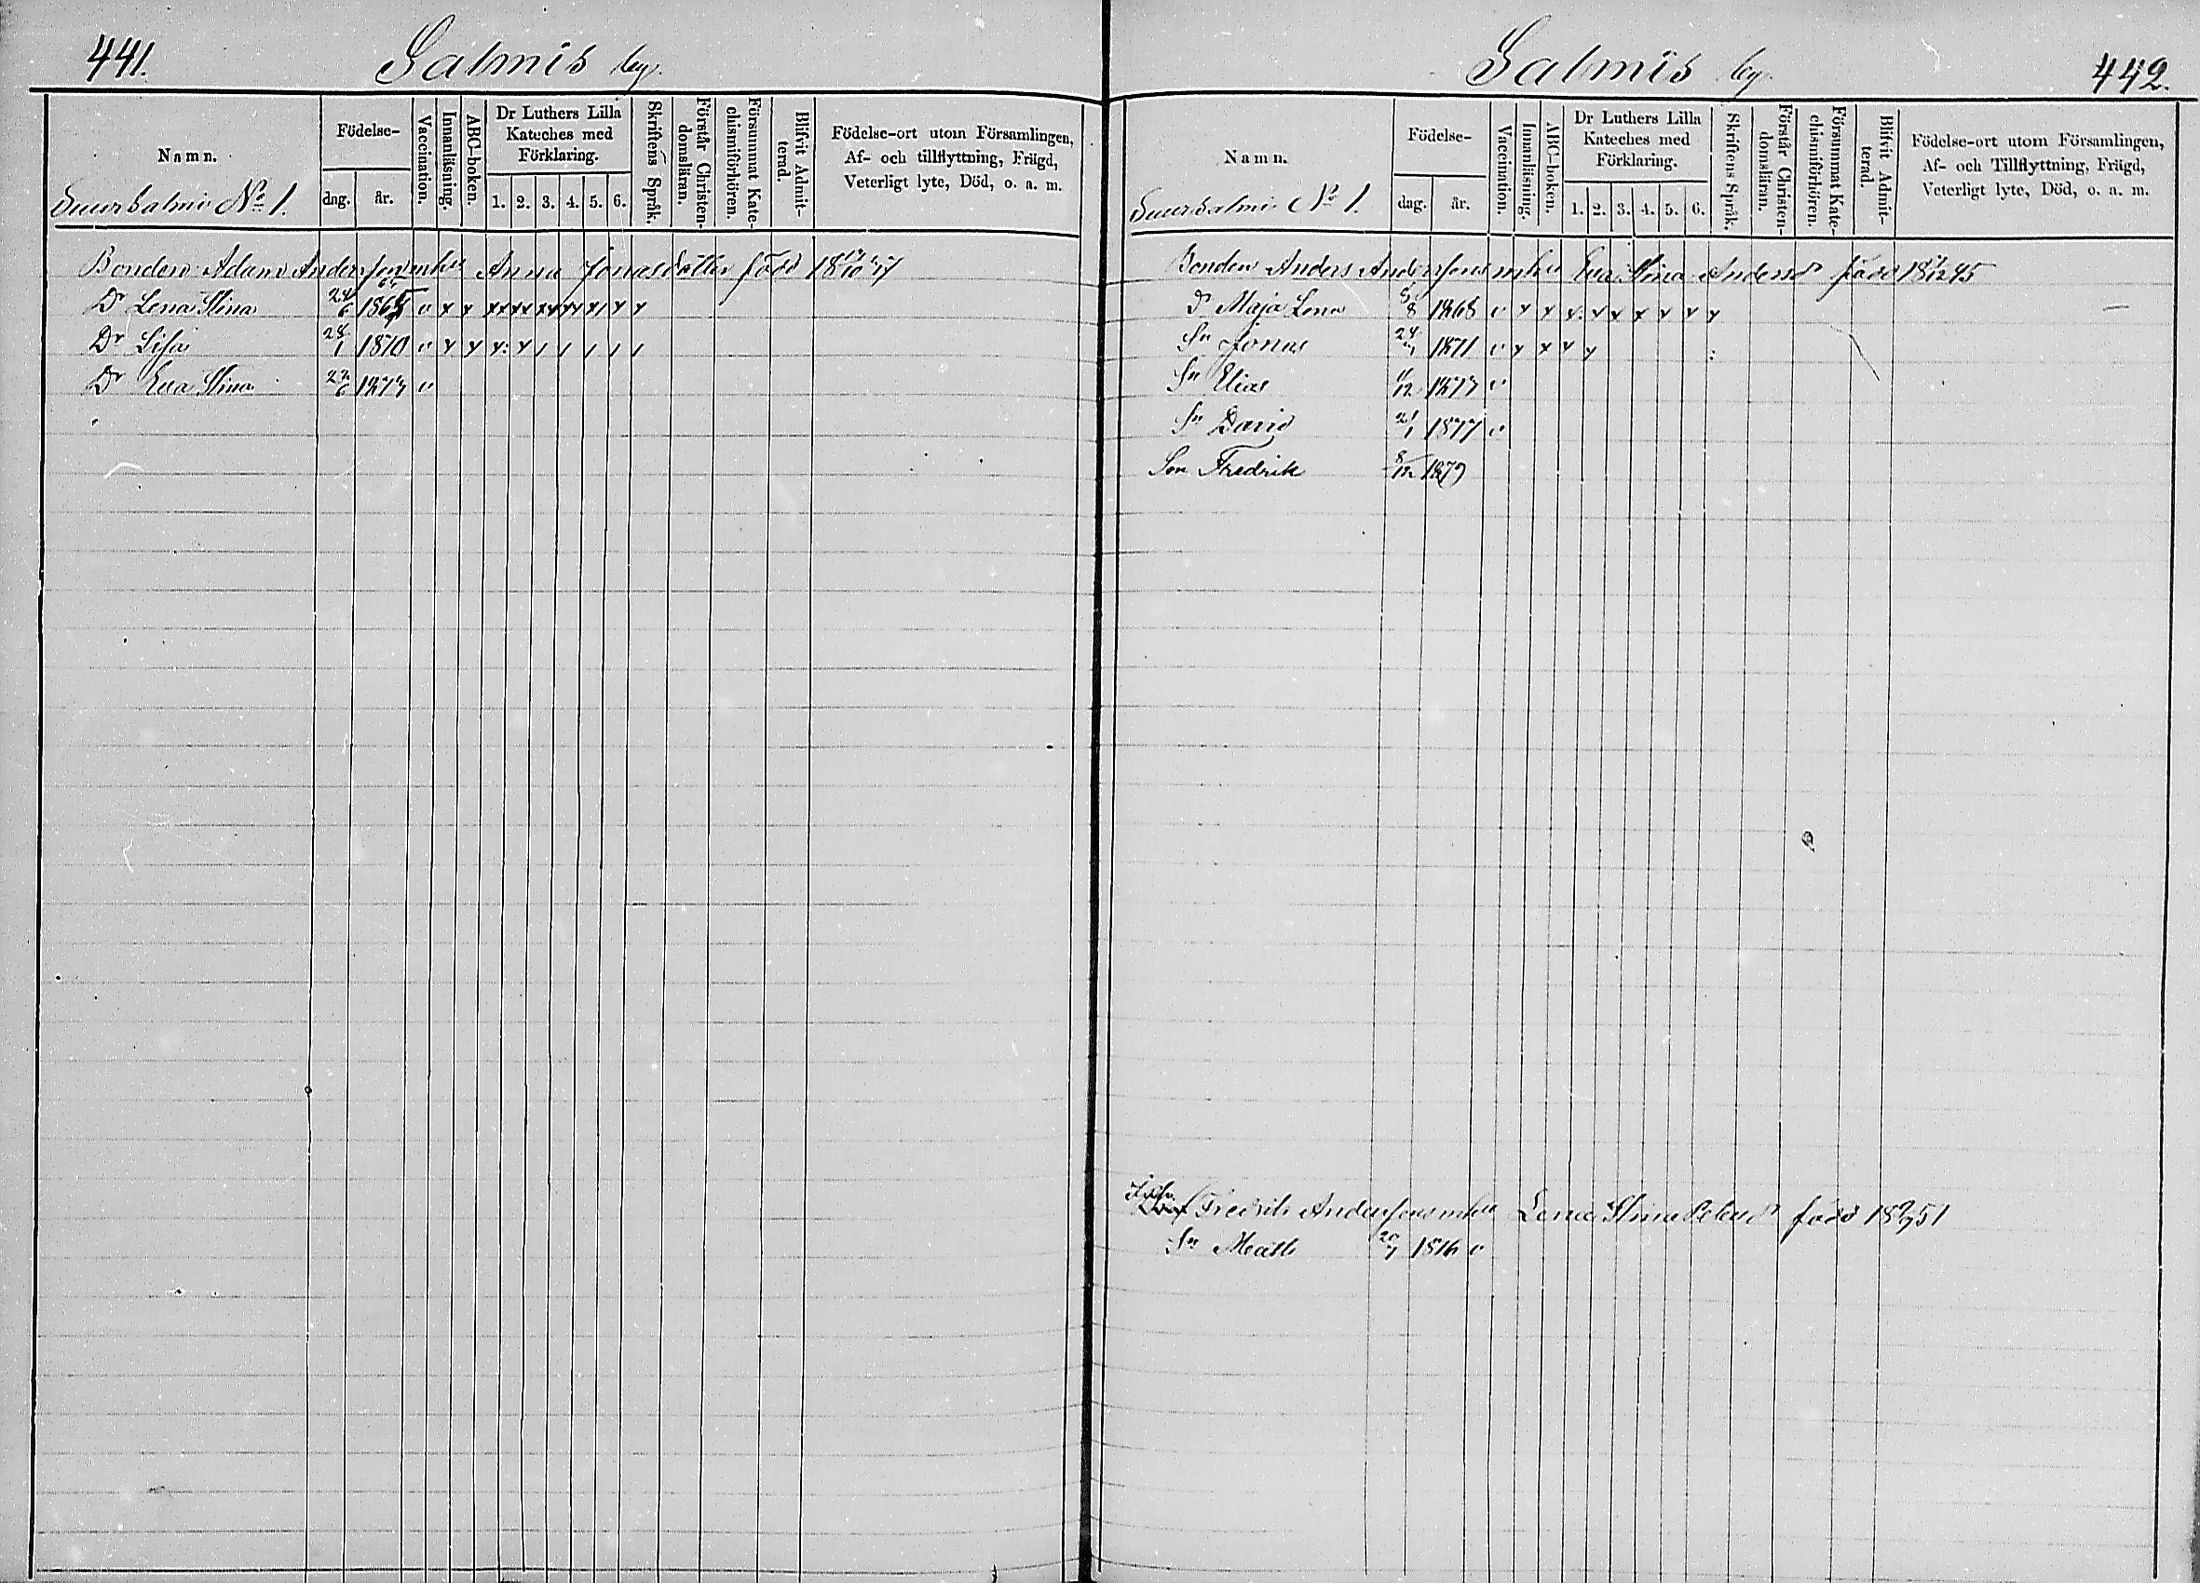 441. Salmis by.
Namn.
Födelse-
dag. år.
Vaccination.
Innanläsning.
ABC-boken.
Dr Luthers Lilla Kateches med Förklaring.
1. 2. 3. 4. 5. 6.
Skriftens Språk.
Förstår Christendomsläran.
Försummat Katechismiförhören.
Blifvit Admitterad.
Födelse-ort utom Församlingen,
Af- och tillflyttning, Frägd,
Veterligt lyte, Död, o. a. m.
Suursalmi No 1.
Bonden Adam Andersson enka Anna Jonasdotter född 18 10
Dr Lena Stina 24/6 1865 v x x
Dr Lisa 28/1 1870 v x x
Dr Eva Stina 22/6 1877 v
Salmis by. 442.
Namn.
Födelse-
dag. år.
Vaccination.
Innanläsning.
ABC-boken.
Dr Luthers Lilla Kateches med Förklaring.
1. 2. 3. 4. 5. 6.
Skriftens Språk.
Förstår Christendomsläran.
Försummat Katechismiförhören.
Blifvit Admitterad.
Födelse-ort utom Församlingen,
Af- och Tillflyttning, Frägd,
Veterligt lyte, Död, o. a. m.
Suursalmi No 1.
Bonden Anders Anderssons Eva Stina Andersdr född 18 12 45
Dr Maja Lena 8 1868 v x x
Sn Jonas 24 1871 v x x x x
Sn Elias 12 1873 v
Sn David 21/1 1877 v
Son Fredrik 8/12 1879
Fredrik Anderssons Lena Stina född 18 51
Sn Matts 20/7 1876 v